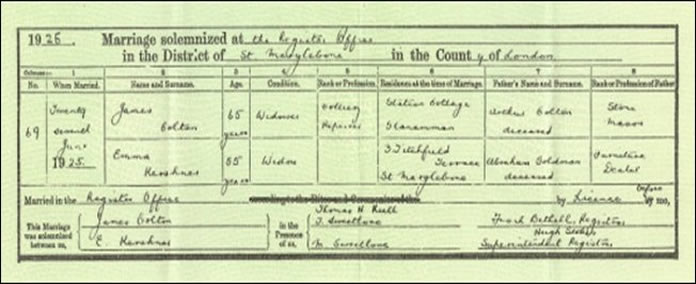 1925. Marriage solemnized at the Register Office
in the District of St. Marylebone in the County of London
Columns:— 1 2 3 4 5 6 7 8
No. When Married. Name and Surname. Age. Condition. Rank or Profession. Residence at the time of Marriage. Father's Name and Surname. Rank or Profession of Father
69 Twenty seventh June 1925. James Colton 65 years Widower Colliery Repairer Station Cottage Arthur Colton deceased Stone Mason
Emma Kershner 55 years Widow 3 Titchfield Terrace St Marylebone Abraham Goldman deceased Furniture Dealer
Married in the Register Office according to the Rites and Ceremonies of the by Licence before by me,
This Marriage was solemnized between us, James Colton E. Kershner in the Presence of us, Thomas H J. Sweetlove M. Sweetlove Frank Bethell, Registrar Hugh Superintendent Registrar